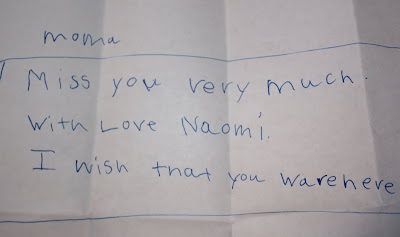 moma
I Miss you very much.
With Love Naomi.
I wish that you warehere